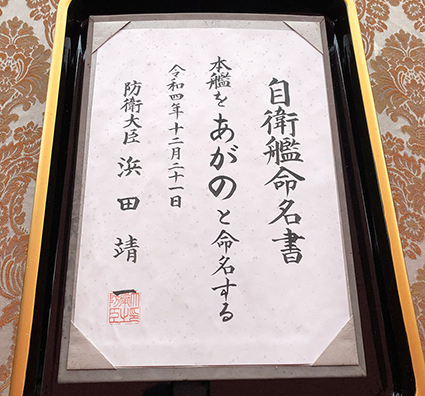 自衛艦命名書
本艦をあがのと命名する
令和四年十二月二十一日
防衛大臣 浜田靖一